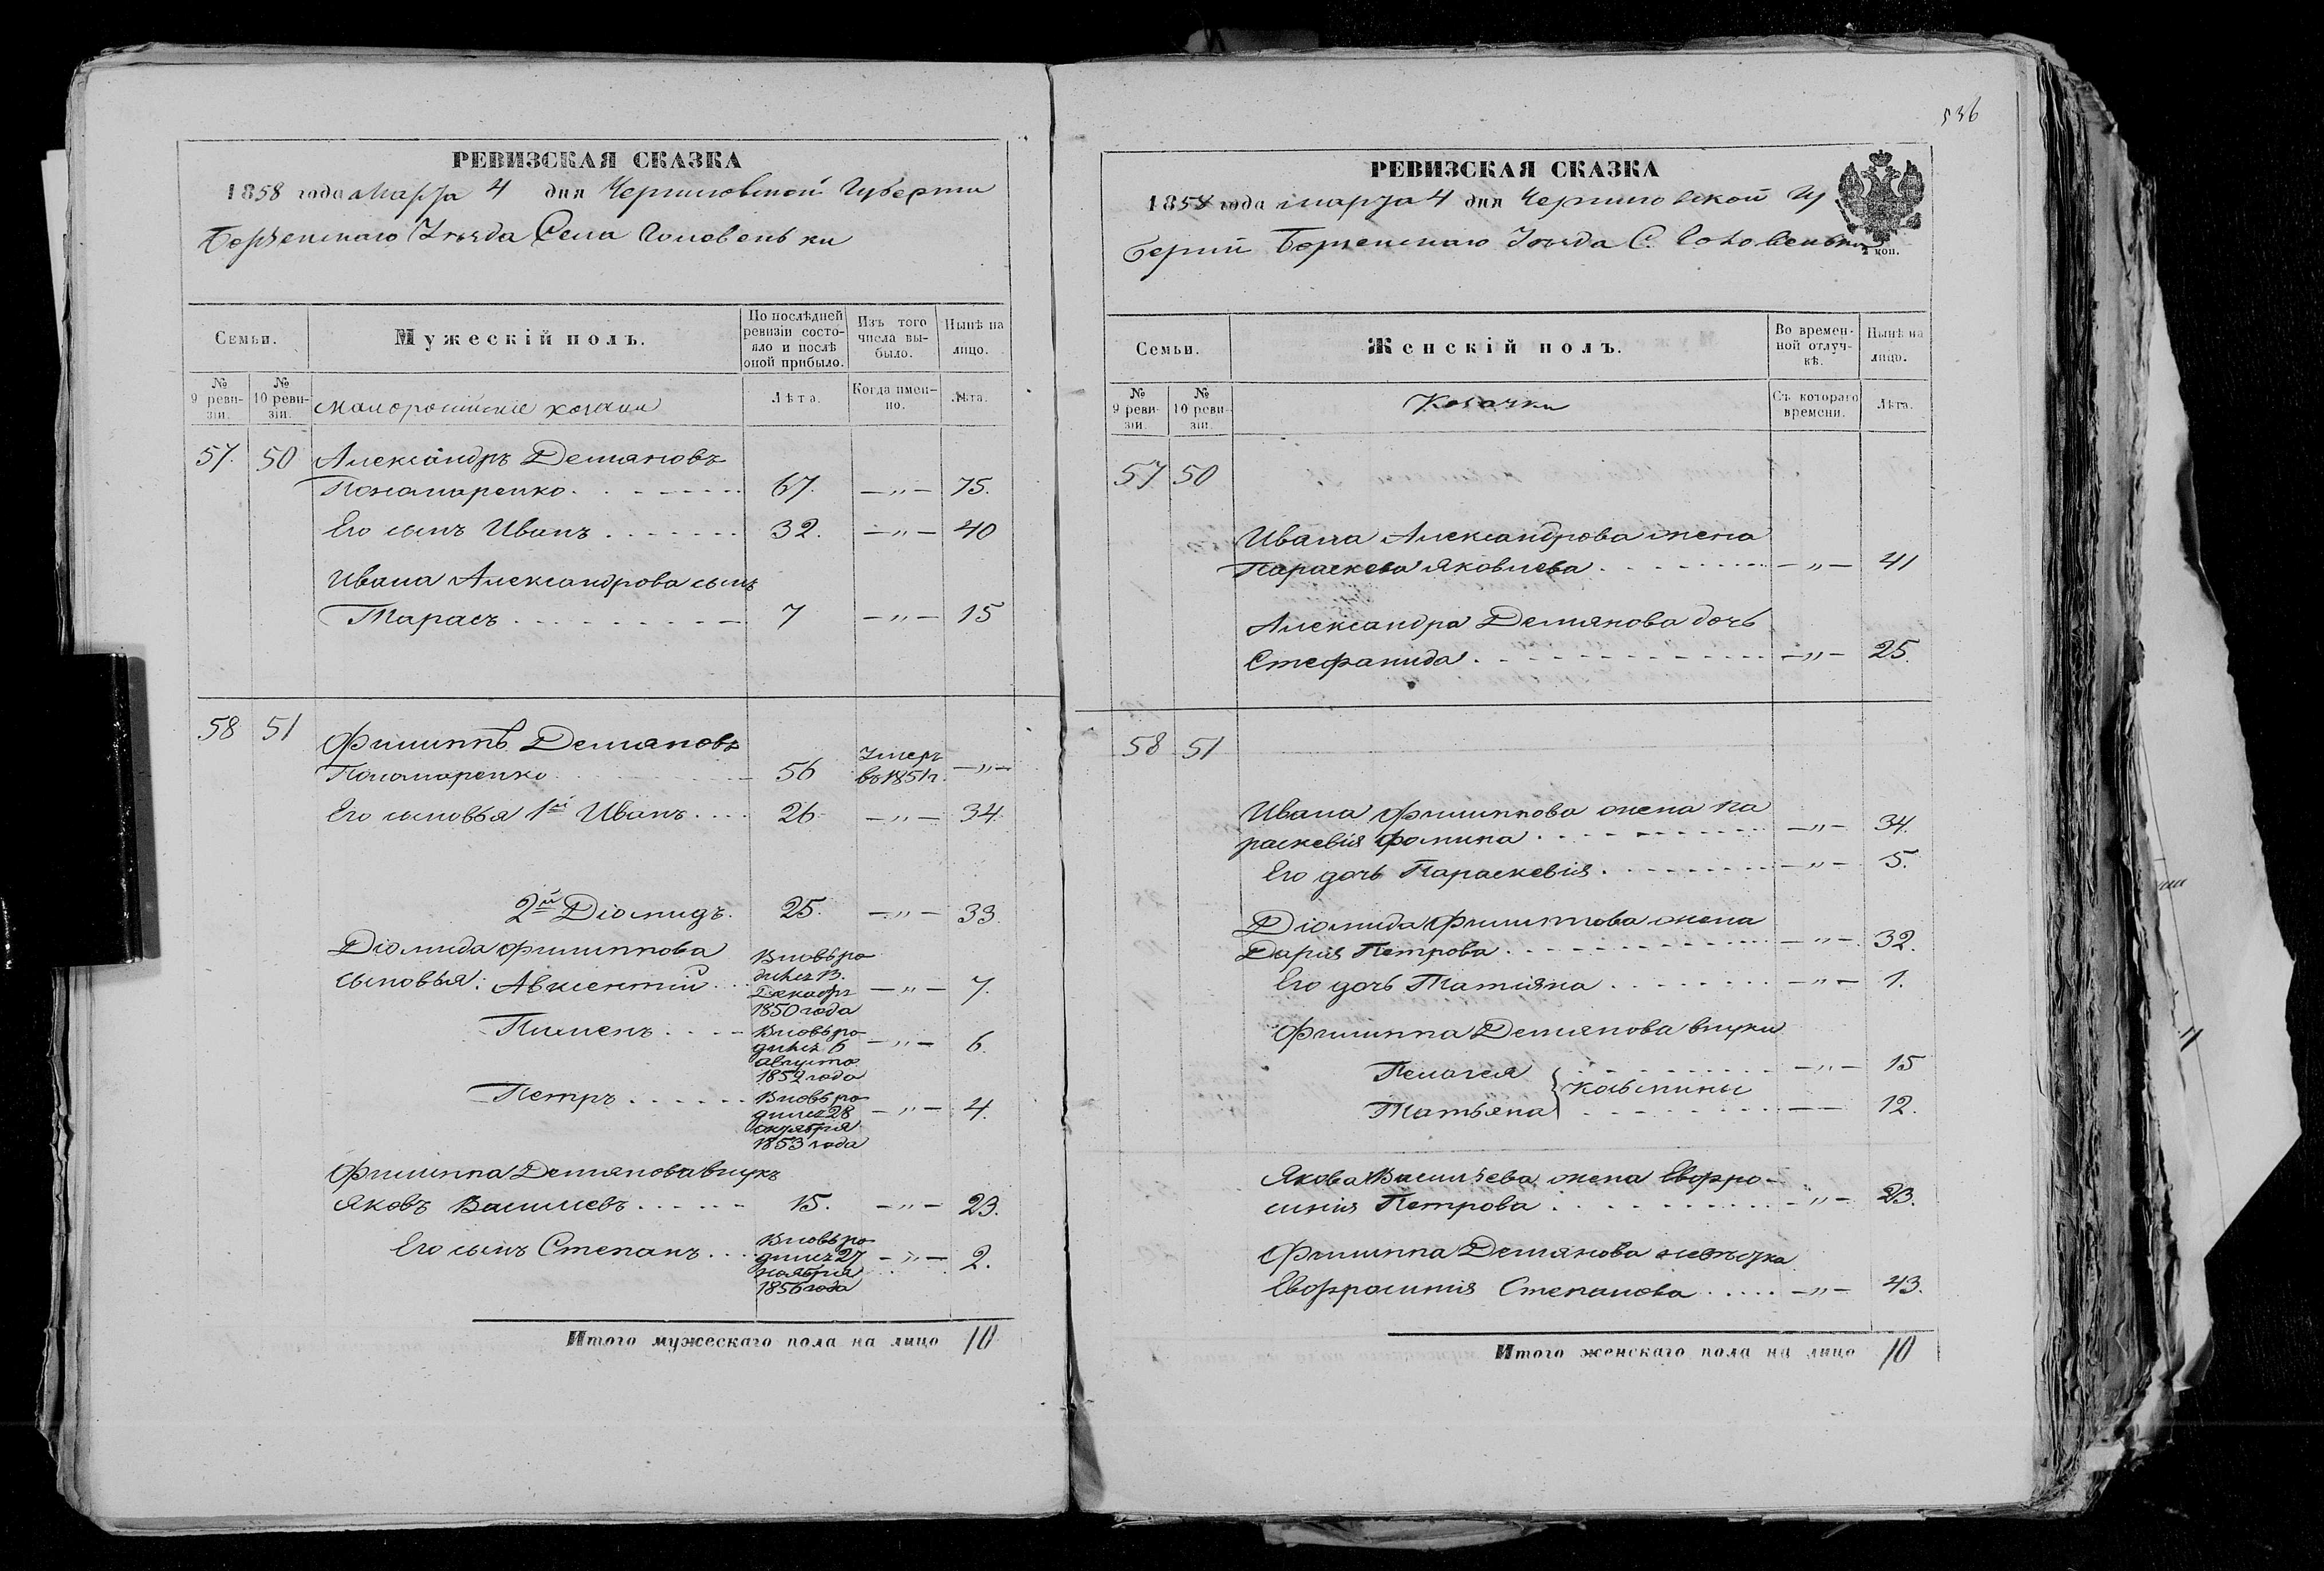 РЕВИЗСКАЯ СКАЗКА
1858 года марта 4 дня Черниговской Губерніи
Борзенскаго Уѣзда Села Головеньки
Семьи.
Мужескій полъ.
По послѣдней ревизіи состояло и послѣ оной прибыло.
Изъ того числа выбыло.
Нынѣ на лицо.
№ 9 ревизіи.
№ 10 ревизіи.
малоросійскіе козаки
Лѣта.
Когда именно.
Лѣта.
57. 50 Александръ Демяновъ
Пономаренко 67. —"— 75.
Его сынъ Иванъ 32. —"— 40
Ивана Александрова сынъ
Тарасъ 7 —"— 15
58 51 Филиппъ Демяновъ
Пономаренко 56 Умеръ во 1851 г. —"—
Его сыновья 1й Иванъ 26 —"— 34.
2й Діомидъ. 25. —"— 33.
Діомида Филиппова
сыновья: Авксентій Вновь родился 13. Декабр 1850 года —"— 7.
Пименъ Вновь родился 6 августа 1852 года —"— 6.
Петръ Вновь родился 28 октября 1853 года —"— 4.
Филиппа Демянова внукъ
Яковъ Васильевъ 15. —"— 23.
Его сынъ Степанъ Вновь родился 27 ноября 1856 года —"— 2.
Итого мужескаго пола на лицо 10
536
РЕВИЗСКАЯ СКАЗКА
1858 года марта 4 дня Черниговской Гу
берніи Борзенскаго Уѣзда С. Головеньки
2 коп.
Семьи.
Женскій полъ.
Во временной отлучкѣ.
Нынѣ на лицо.
№ 9 ревизіи.
№ 10 ревизіи.
Козачки
Съ котораго времени.
Лѣта.
57 50
Ивана Александрова жена
Параскева Яковлева —"— 41
Александра Демянова дочь
Стефанида —"— 25.
58 51
Ивана Филиппова жена Па
раскевія Фомина —"— 34.
Его дочь Параскевія —"— 5.
Діомида Филиппова жена
Дарія Петрова —"— 32.
Его дочь Татіяна —"— 1.
Филиппа Демянова внуки
Пелагея —"— 15
Козьмины
Татьяна —— 12.
Якова Васильева жена Евфро-
синія Петрова —"— 23.
Филиппа Демянова невѣстка
Евфросинія Степанова —"— 43.
Итого женскаго пола на лицо 10